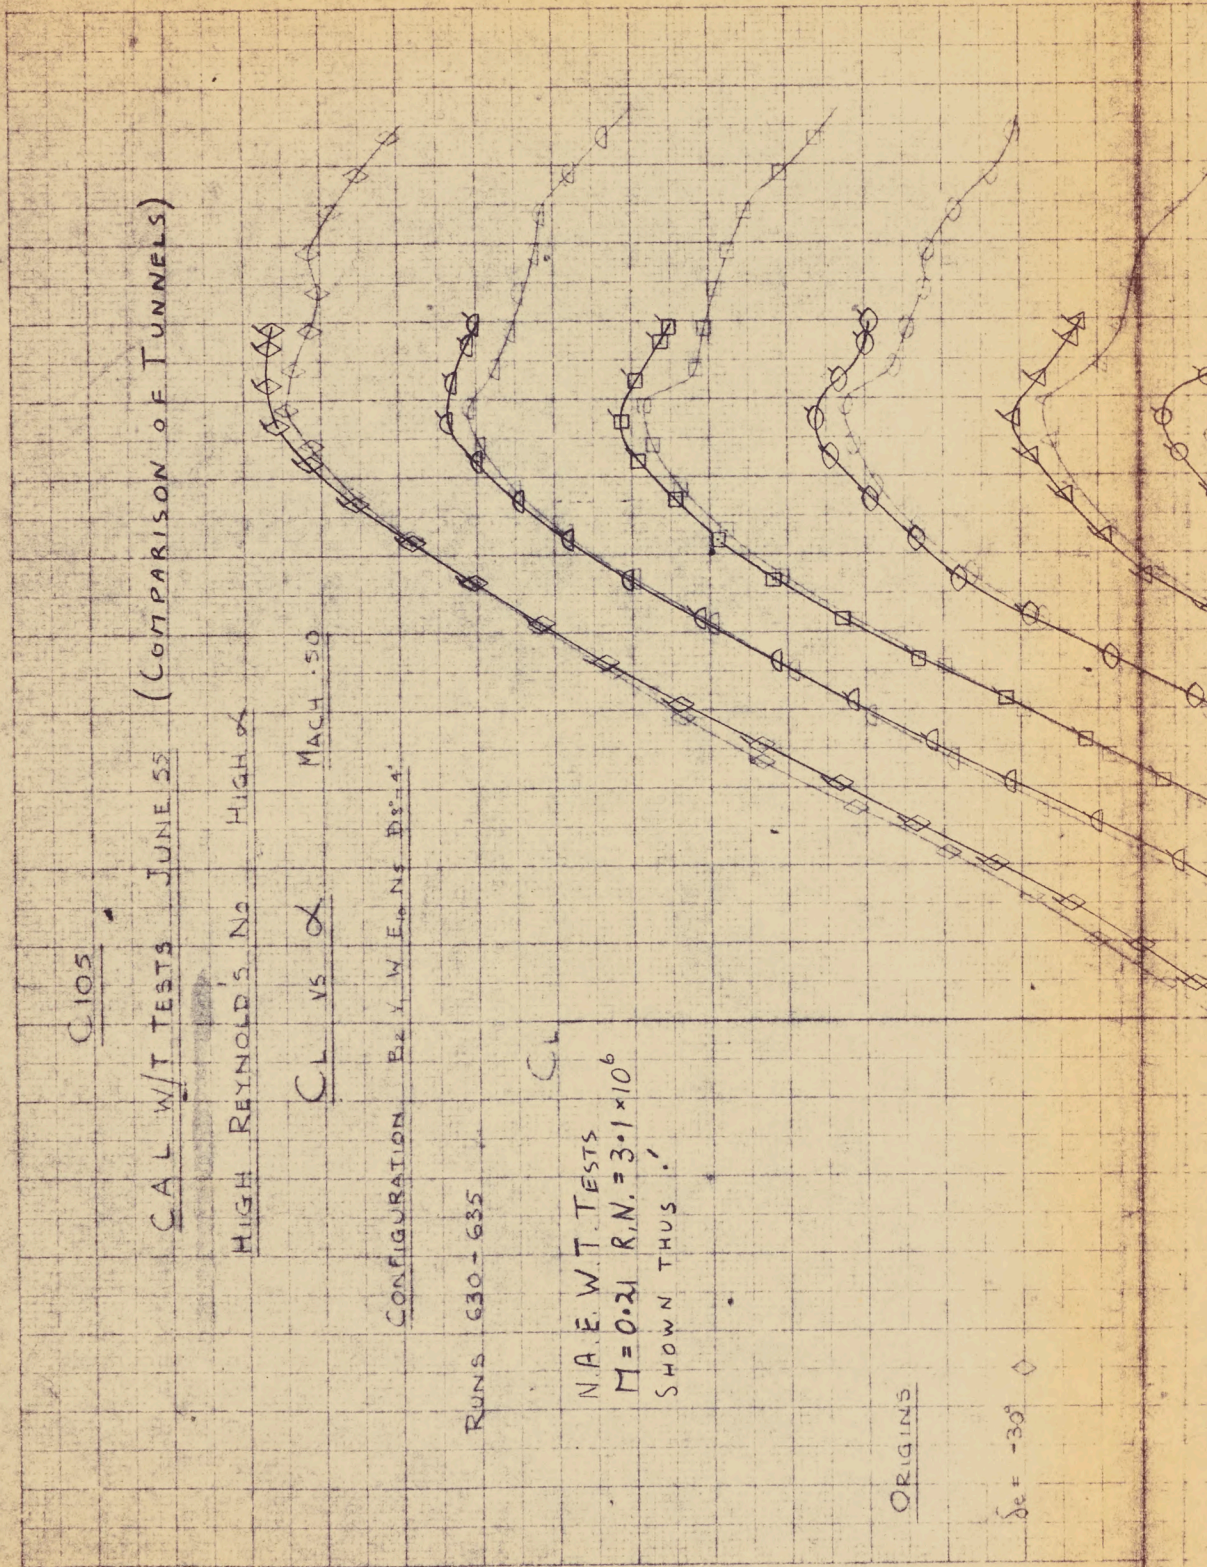 C 105
C A L W/T TESTS JUNE 55 (COMPARISON OF TUNNELS)
HIGH REYNOLD'S NO HIGH α
CL VS α MACH .50
CONFIGURATION W
RUNS 630 - 635
CL
N.A.E. W.T. TESTS
M = 0.21 R.N. = 3.1 × 10⁶
SHOWN THUS
ORIGINS
δe = -30° ◇